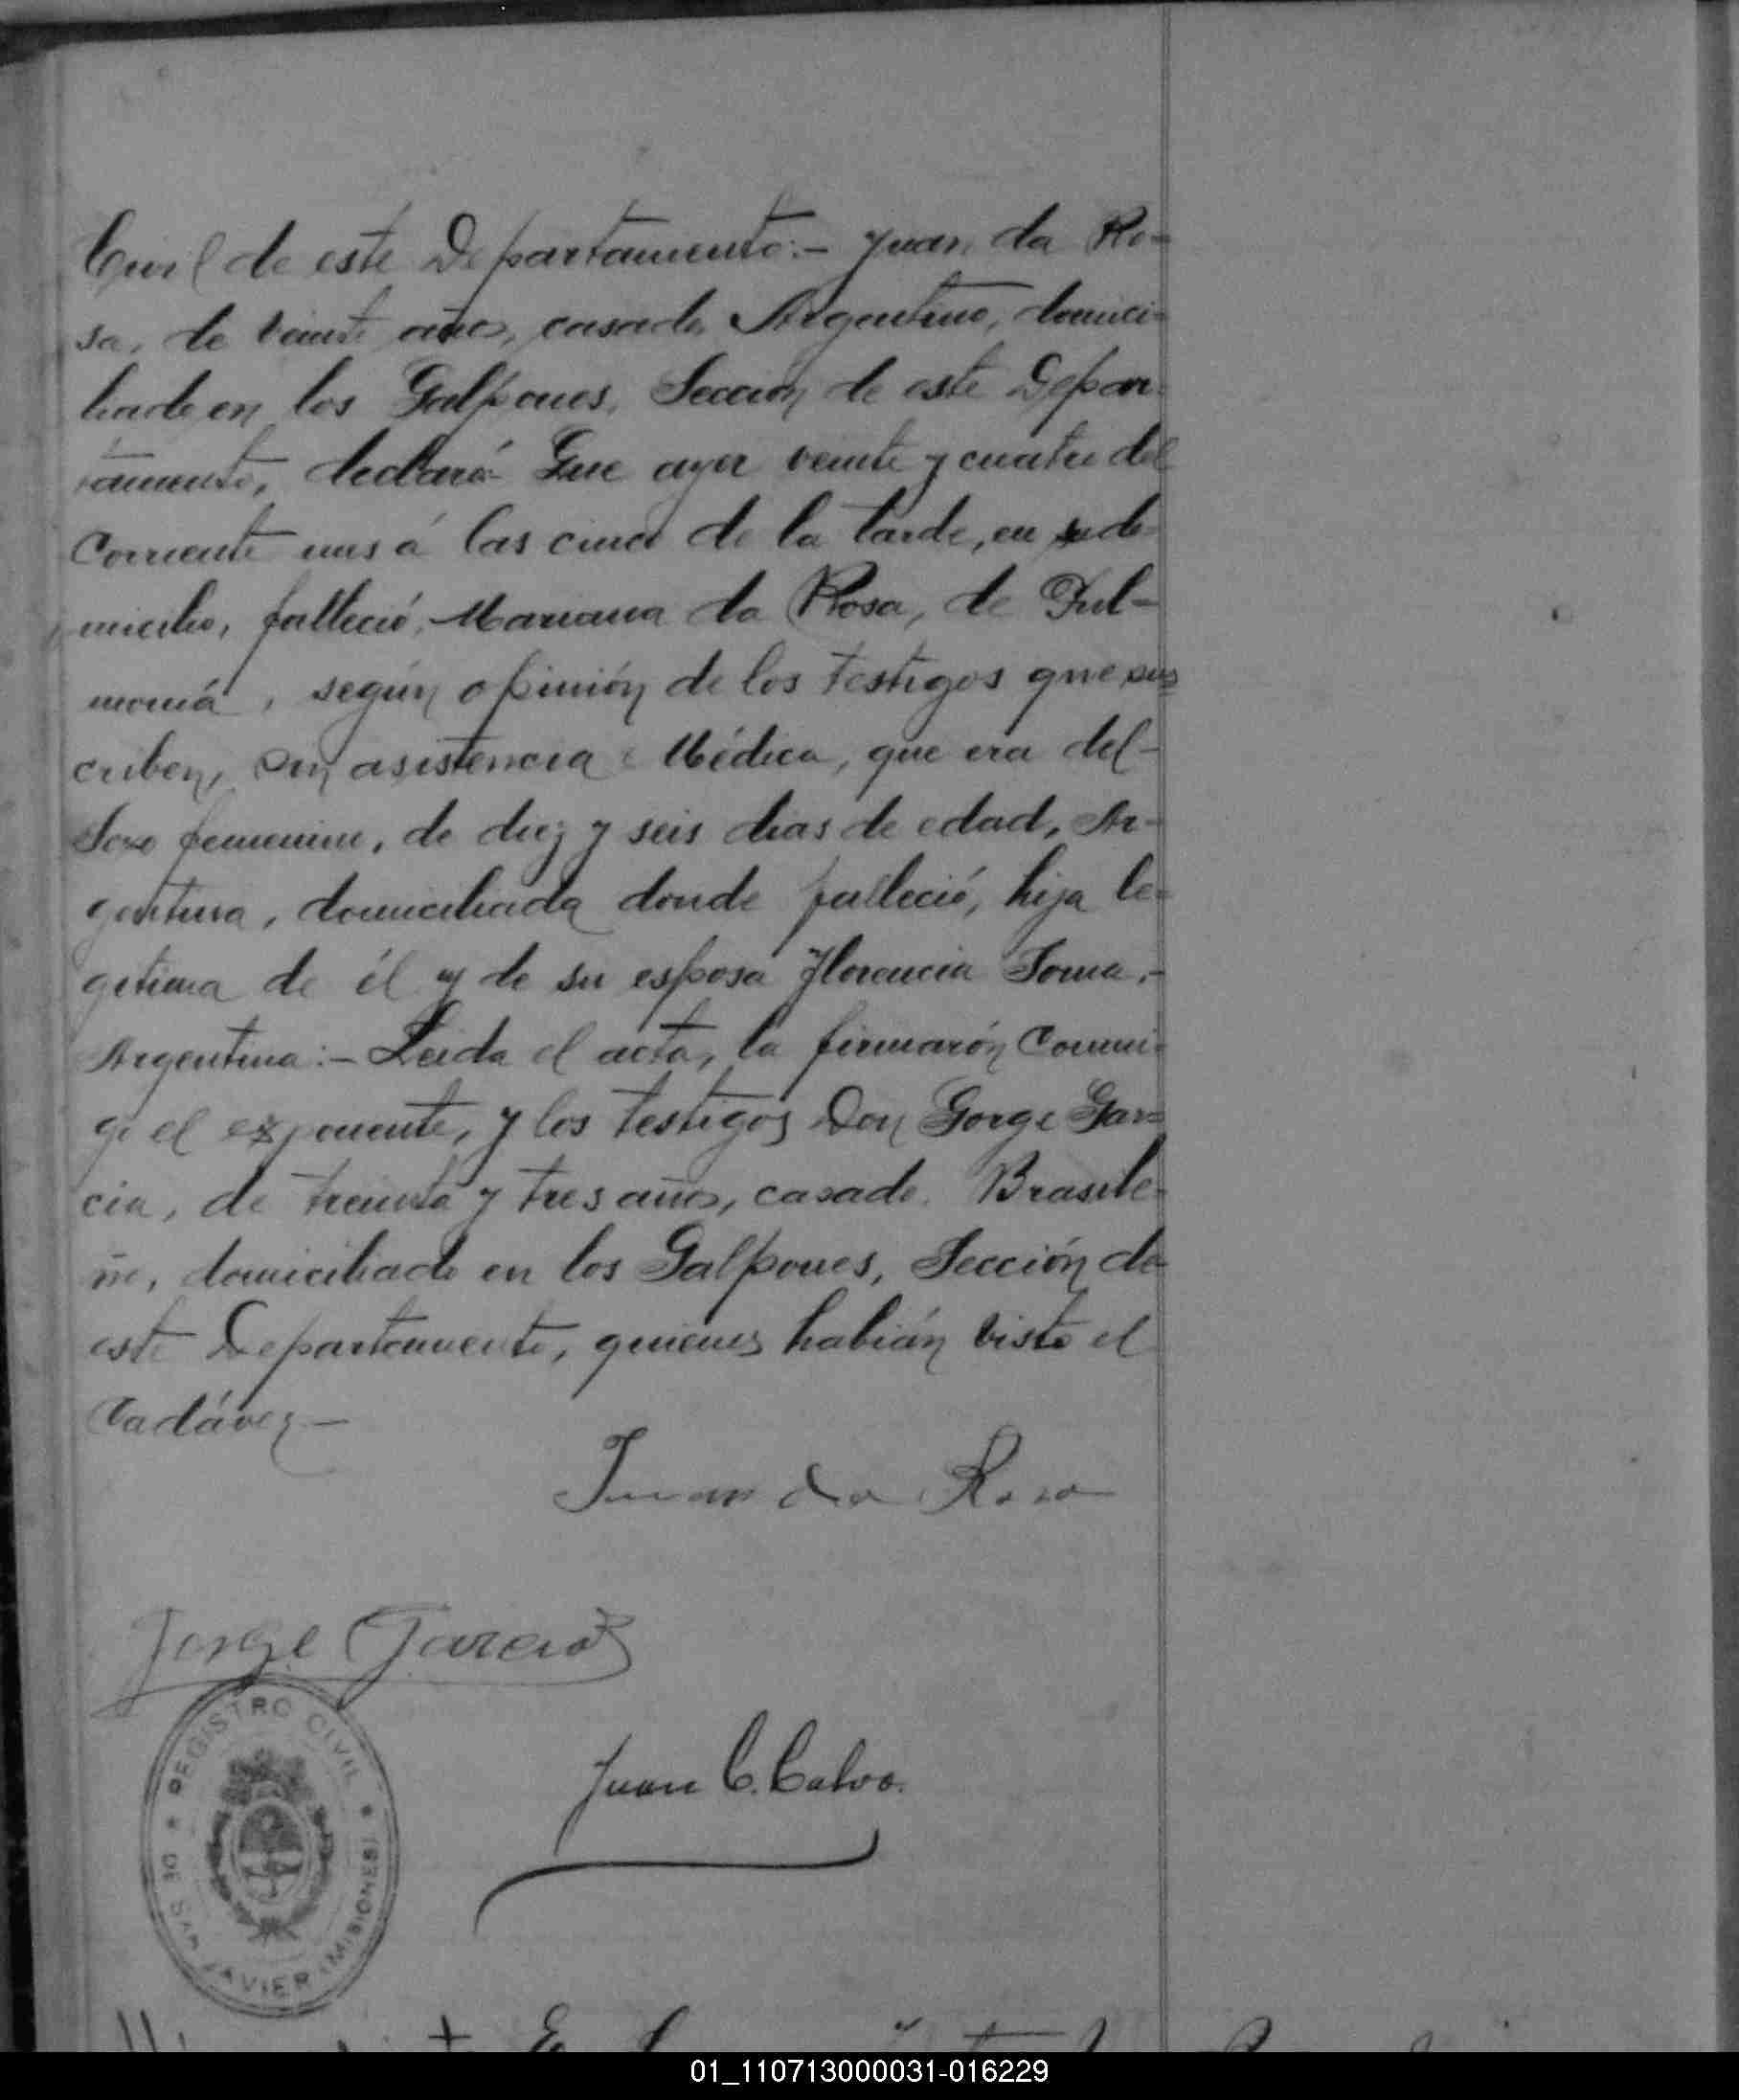 Civil de este Departamento:- Juan da Ro=
sa, de veinte años, casado, Argentino, domici=
liado en los Galpones, Sección de este Depar=
tamento, declaró: Que ayer veinte y cuatro del
corriente mes á las cinco de la tarde, en su do=
micilio, falleció, Mariana da Rosa, de Pul=
monía, según opinión de los testigos que sus
criben, sin asistencia Médica, que era del-
Sexo femenino, de diez y seis dias de edad, Ar=
gentina, domiciliada donde falleció, hija le=
gitima de él y de su esposa Florencia Soma,-
Argentina:- Leida el acta, la firmarón Conmi=
go el exponente, y los testigos Don Gorge Gar=
cia, de treinta y tres años, casado, Brasile=
ño, domiciliado en los Galpones, Sección de
este Departamento, quienes habián visto el
Cadáver.-
Juan da Rosa
Jorge Garcia
REGISTRO CIVIL
Juan C. Calvo.
DE SAN JAVIER (MISIONES)
01_110713000031-016229